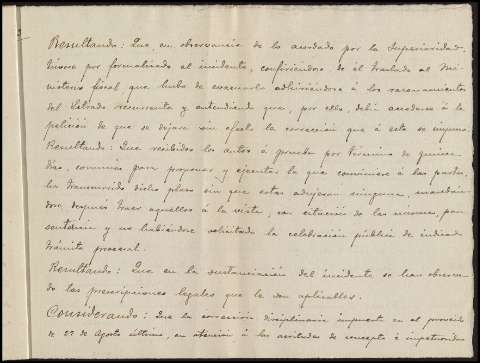 Resultando: Que, en observancia de lo acordado por la Superioridad,
túvose por formalizado el incidente, confiriéndose de él traslado al Mi-
nisterio fiscal que hubo de evacuarlo adhiriéndose á los razonamientos
del Letrado recurrente y entendiendo que, por ello, debía accederse á la
petición de que se dejara sin efecto la corrección que á este se impuso.
Resultando: Que recibidos los autos á prueba por término de quince
días, comunes para proponer y ejecutar la que conviniere á las partes,
ha transcurrido dicho plazo sin que estas adujeran ninguna, mandán-
dose después traer aquellos á la vista, con citación de las mismas, para
sentencia y no habiéndose solicitado la celebración pública de indicado
trámite procesal.
Resultando: Que en la sustanciación del incidente se han observa-
do las prescripciones legales que le son aplicables.
Considerando: Que la corrección disciplinaria impuesta en el proveido
de 27 de Agosto último, en atención á las acritudes de concepto é impetuosidas